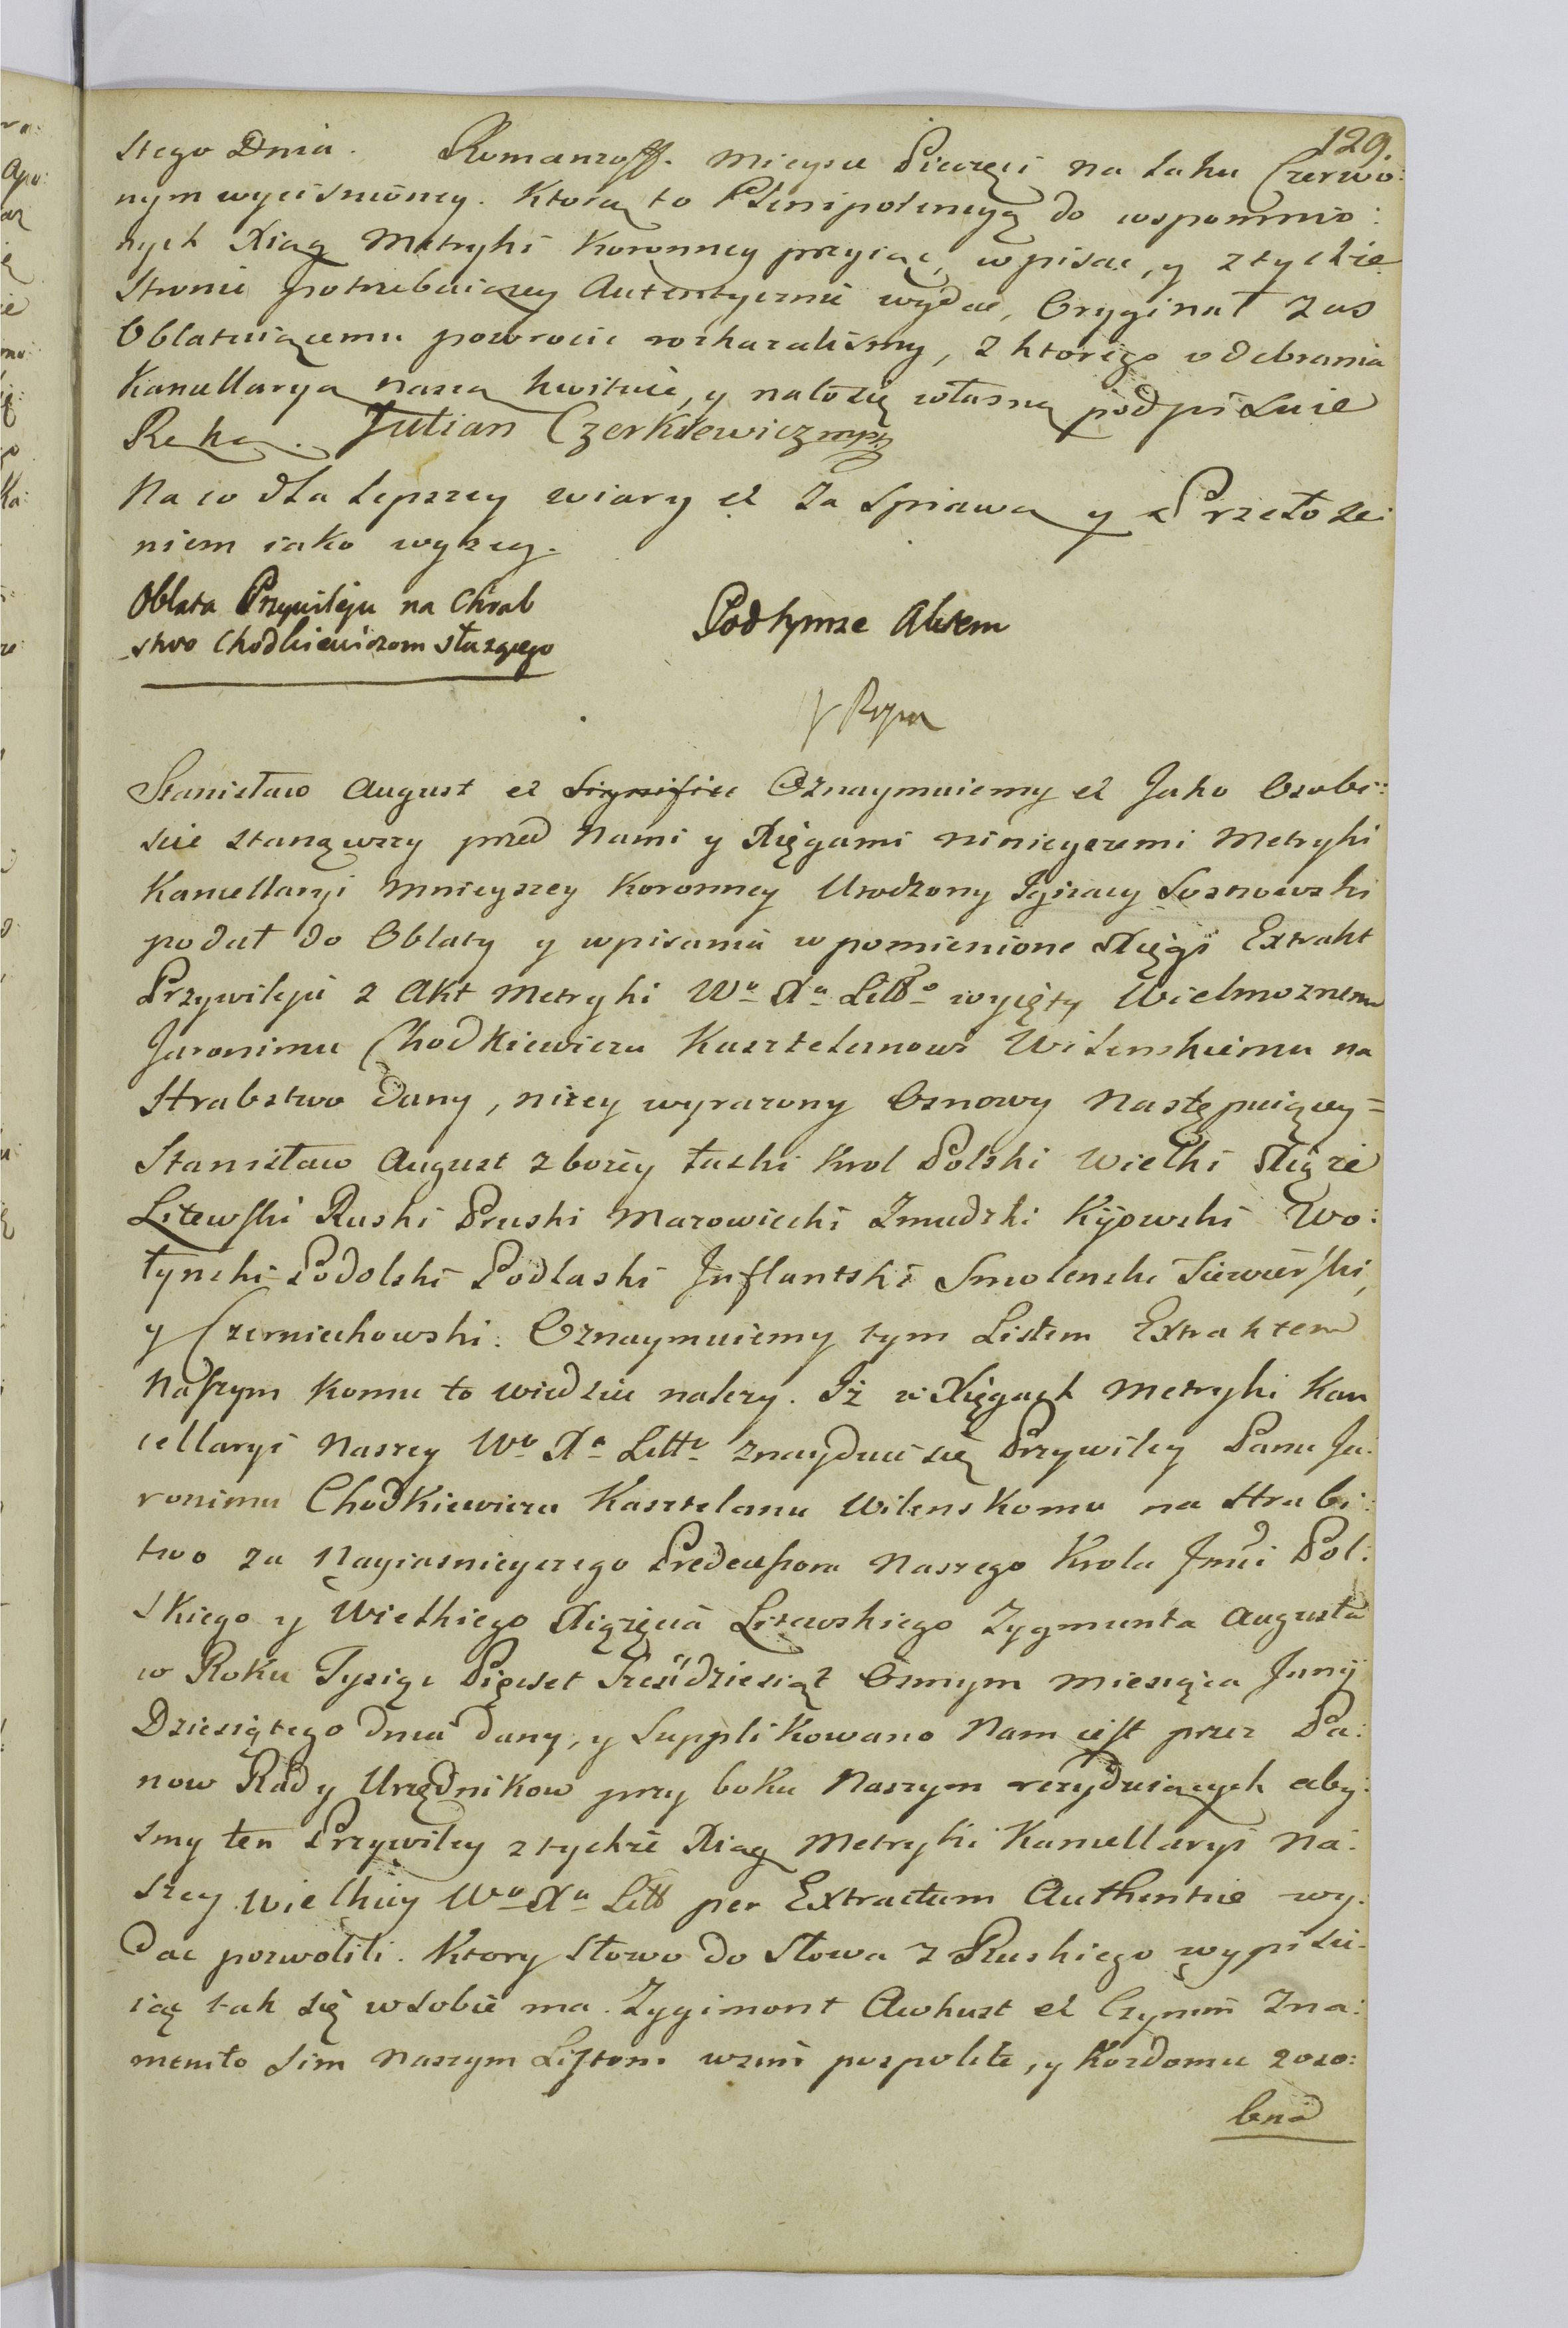 129.
stego Dnia. Romanzoff. Mieysce Pieczęci na Laku Czerwo:
nym wyciśnioney. Ktorą to Plenipotencyą do wspomnio:
nych Xiąg Metryki Koronney przyiąć, wpisac, y z tychże
Stronie potrzebuiącey Autentycznie wydac, Oryginał zas
Oblatuiącemu powrocic rozkazalismy, z ktorego odebrania
Kancellarya nasza kwituie, y na to się własną podpisuie
Ręką. Julian Czerkiewicz mp
Na co dla lepszey wiary et Za Sprawą y Przełoze:
niem iako wyzey.
Oblata Przywileju na Chrab
stwo Chodkiewiczom słuzącego
Pod tymze Aktem
Stanisław August et Signifi Oznaymuiemy et Jako Osobi:
scie stanąwszy przed Nami y Xięgami ninieyszemi Metryki
Kancellaryi Mnieyszey Koronney Urodzony Ignacy Sosnowski
podał do Oblaty y wpisania w pomienione Xięgi Extrakt
Przywileju z Akt Metryki Wo Xa Litto wyięty Wielmoznemu
Jaronimu Chodkiewiczu Kasztelanowi Wilenskiemu na
Hrabstwo Dany, nizey wyrazony Osnowy Następuiącey =
Stanisław August z bozey łaski Krol Polski Wielki Xiąze
Litewski Ruski Pruski Mazowiecki Zmudzki Kijowski Wo:
łynski Podolski Podlaski Inflantski Smolenski Siewierski,
y Czerniechowski. Oznaymuiemy tym Listem Extraktem
Naszym komu to wiedziec nalezy. Iż w Xięgach Metryki Kan
cellaryi Naszey Wo Xa Litto znayduie się Przywiley Panu Ja:
ronimu Chodkiewiczu Kasztelanu Wilenskomu na Hrabi:
two za Nayiasnieyszego Predecessora Naszego Krola Jmci Pol:
skiego y Wielkiego Xiązęcia Litewskiego Zygmunta Augusta
w Roku Tysiąc Pięcset Szesdziesiąt Osmym Miesiąca Junij
Dziesiątego dnia dany, y Supplikowano Nam iest przez Pa:
now Rad y Urzędnikow przy boku Naszym rezyduiących aby:
smy ten Przywiley z tychże Xiąg Metryki Kancellaryi Na:
szey Wielkiey Wo Xa Litt per Extractum Authentice wy:
dac pozwolili. Ktory Słowo do Słowa z Ruskiego wypisu:
iąc tak się w sobie ma. Zygimont Awhust et Czynim Zna:
menito sim Naszym Listom wsim pospolite, y kozdomu zoso:
bna